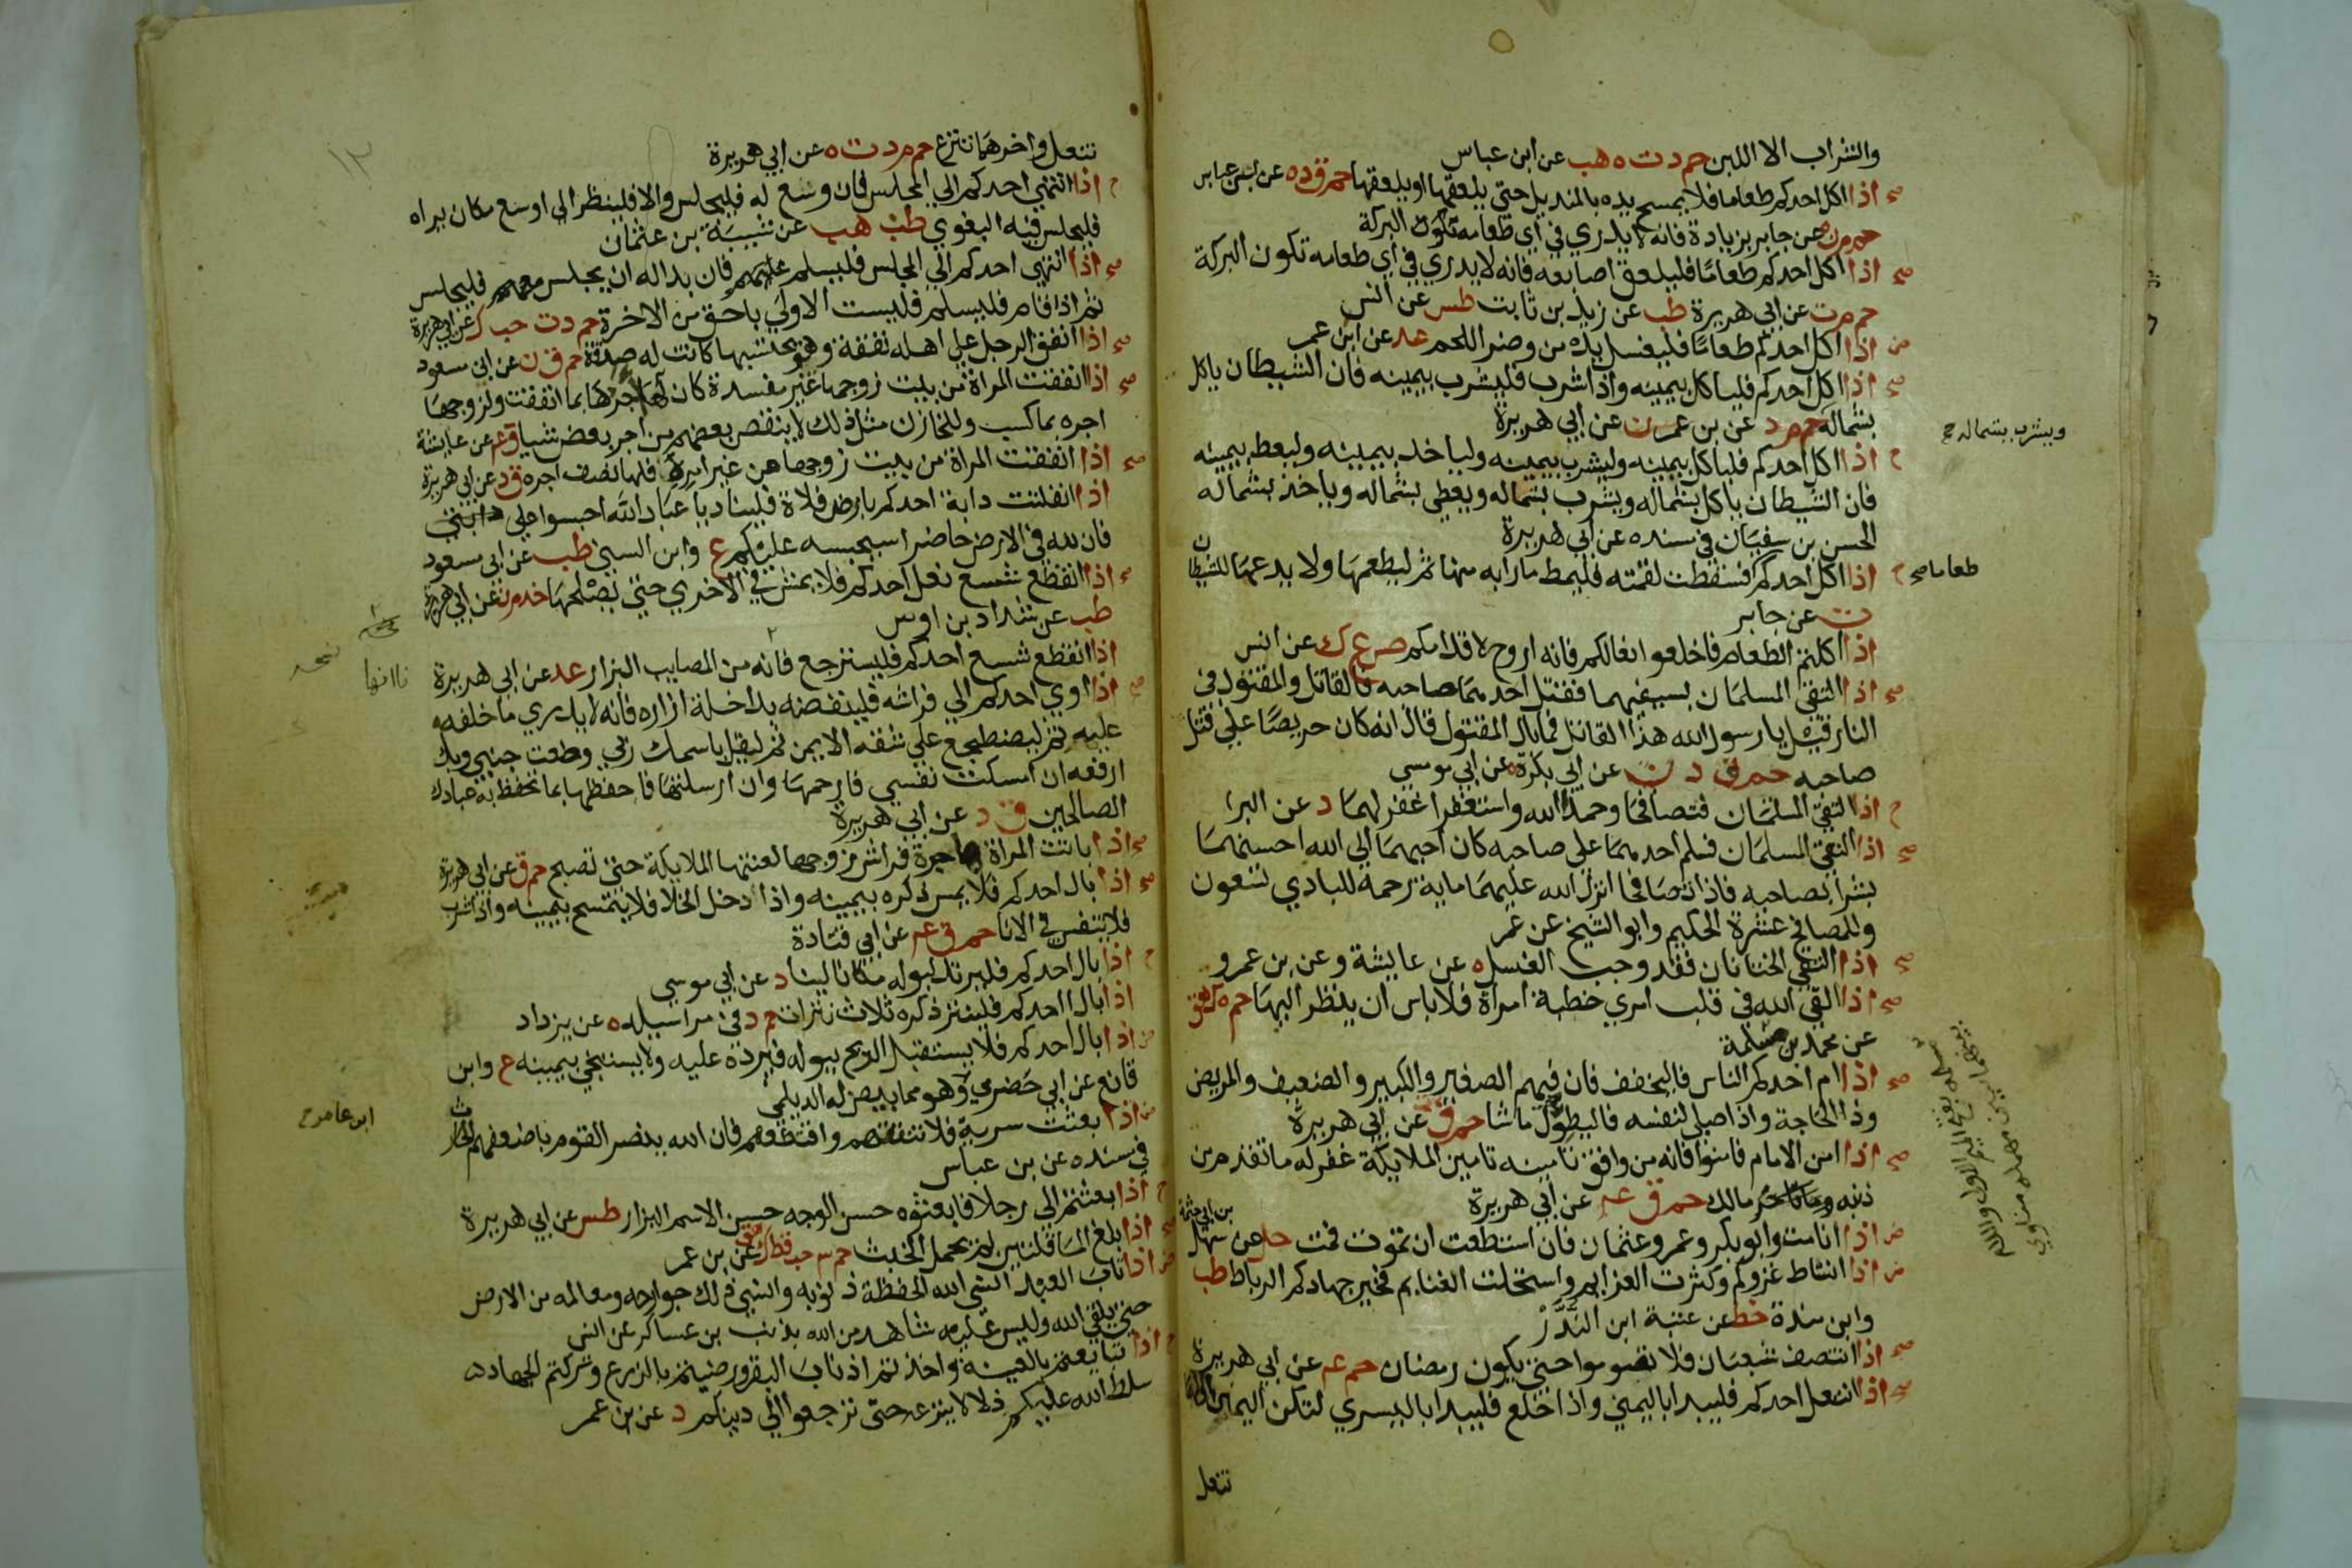 والشراب الا اللبن حم د ت ه هب عن ابن عباس
صح اذا اكل احدكم طعاما فلا يمسح يده بالمنديل حتي يلعقها او يلعقها حم ق د ه عن ابن عباس
حم م ن ه عن جابر بزيادة فانه لا يدري في اي طعامه تكون البركة
صح اذا اكل احدكم طعاما فليلعق اصابعه فانه لا يدري في اي طعامه تكون البركة
حم م ت عن ابي هريرة طب عن زيد بن ثابت طس عن انس
ض اذا اكل احدكم طعاما فليغسل يده من وضر اللحم عد عن ابن عمر
صح اذا اكل احدكم فلياكل بيمينه واذا شرب فليشرب بيمينه فان الشيطان ياكل
بشماله حم م د عن بن عمر ن عن ابي هريرة
ويشرب بشماله صح
ح اذا اكل احدكم فلياكل بيمينه وليشرب بيمينه ولياخذ بيمينه وليعط بيمينه
فان الشيطان ياكل بشماله ويشرب بشماله ويعطي بشماله وياخذ بشماله
الحسن بن سفيان في سنده عن ابي هريرة
ح اذا اكل احدكم فسقطت لقمته فليمط مارابه منها ثم ليطعمها ولا يدعها للشيطان
طعاما صح
ت عن جابر
اذا اكلتم الطعام فاخلعوا نعالكم فانه اروح لاقدامكم طس ع ك عن انس
صح اذا التقي المسلمان بسيفيهما فقتل احدهما صاحبه فالقاتل والمقتول في
النار قيل يا رسول الله هذا القاتل فما بال المقتول قال انه كان حريصا علي قتل
صاحبه حم ق د ن عن ابي بكرة ه عن ابي موسي
ح اذا التقي المسلمان فتصافحا وحمدا الله واستغفرا غفر لهما د عن البرا
صح اذا التقي المسلمان فسلم احدهما علي صاحبه كان احبهما الي الله احسنهما
بشرا بصاحبه فاذا تصافحا انزل الله عليهما ماية رحمة للبادي تسعون
وللمصافح عشرة الحكيم وابو الشيخ عن عمر
صح اذا التقي الختانان فقد وجب الغسل ه عن عايشة وعن بن عمرو
صح اذا القي الله في قلب امري خطبة امراة فلا باس ان ينظر اليها حم ه ك هق
عن محمد بن مسلمة
صح اذا ام احدكم الناس فليخفف فان فيهم الصغير والكبير والضعيف والمريض
وذا الحاجة واذا صلي لنفسه فليطول ما شا حم ق ت عن ابي هريرة
صح اذا امن الامام فامنوا فانه من وافق تامينه تامين الملايكة غفر له ما تقدم من
ذنبه مالك حم ق عه عن ابي هريرة
بن ابي حثمة
ض اذا انا مت وابو بكر وعمر وعثمان فان استطعت ان تموت فمت حل عن سهل
ض اذا انتاط غزوكم وكثرت العزايم واستحلت الغنايم فخير جهادكم الرباط طب
وابن مندة خط عن عتبة ابن الندر
صح اذا انتصف شعبان فلا تصوموا حتي يكون رمضان حم عه عن ابي هريرة
صح اذا انتعل احدكم فليبدا باليمني واذا خلع فليبدا باليسري لتكن اليمني
تنعل
تنعل واخرهما تنزع حم م د ت ه عن ابي هريرة
١٢
ح اذا انتهي احدكم الي المجلس فان وسع له فليجلس والا فلينظر الي اوسع مكان يراه
فليجلس فيه البغوي طب هب عن شيبة بن عثمان
صح اذا انتهي احدكم الي المجلس فليسلم عليهم فان بدا له ان يجلس معهم فليجلس
ثم اذا قام فليسلم فليست الاولي باحق من الاخرة حم د ت حب ك عن ابي هريرة
صح اذا انفق الرجل علي اهله نفقة وهو يحتسبها كانت له صدقة حم ق ن عن ابي مسعود
صح اذا انفقت المراة من بيت زوجها غير مفسدة كان لها اجرها بما انفقت ولزوجها
اجره بما كسب وللخازن مثل ذلك لا ينقص بعضهم من اجر بعض شيا ق عه عن عايشة
صح اذا انفقت المراة من بيت زوجها عن غير امره فلها نصف اجره ق د عن ابي هريرة
اذا انفلتت دابة احدكم بارض فلاة فليناد يا عباد الله احبسوا علي دابتي
فان لله في الارض حاضرا سيحبسه عليكم ع وابن السني طب عن ابن مسعود
صح اذا انقطع شسع نعل احدكم فلا يمش في الاخري حتي يصلحها خد م ن عن ابي هريرة
طب عن شداد بن اوس
اذا انقطع شسع احدكم فليسترجع فانه من المصايب البزار عد عن ابي هريرة
صح اذا اوي احدكم الي فراشه فلينفضه بداخلة ازاره فانه لا يدري ما خلفه
عليه ثم ليضطجع علي شقه الايمن ثم ليقل باسمك ربي وضعت جنبي وبك
ارفعه ان امسكت نفسي فارحمها وان ارسلتها فاحفظها بما تحفظ به عبادك
الصالحين ق د عن ابي هريرة
صح اذا باتت المراة هاجرة فراش زوجها لعنتها الملايكة حتي تصبح حم ق عن ابي هريرة
صح اذا بال احدكم فلا يمس ذكره بيمينه واذا دخل الخلا فلا يتمسح بيمينه واذا شرب
فلا يتنفس في الانا حم ق عه عن ابي قتادة
ح اذا بال احدكم فليرتد لبوله مكانا لينا د عن ابي موسي
اذا بال احدكم فلينتر ذكره ثلاث نترات حم د في مراسيله ه عن يزداد
ض اذا بال احدكم فلا يستقبل الريح ببوله فيرده عليه ولا يستنجي بيمينه ع وابن
قانع عن ابي حضرمي وهو مما بيض له الديلمي
ض اذا بعثت سرية فلا تنتقهم واقتطعهم فان الله ينصر القوم باضعفهم الحارث
في مسنده عن بن عباس
ابن عامر ح
ح اذا بعثتم الي رجلا فابعثوه حسن الوجه حسن الاسم البزار طس عن ابي هريرة
صح اذا بلغ الما قلتين لم يحمل الخبث حم ٣ حب قط ك هق عن بن عمر
ض اذا تاب العبد انسي الله الحفظة ذنوبه وانسي ذلك جوارحه ومعالمه من الارض
حتي يلقي الله وليس عليه شاهد من الله بذنب بن عساكر عن انس
ح اذا تبايعتم بالعينة واخذتم اذناب البقر ورضيتم بالزرع وتركتم الجهاد
سلط الله عليكم ذلا لا ينزعه حتي ترجعوا الي دينكم د عن بن عمر